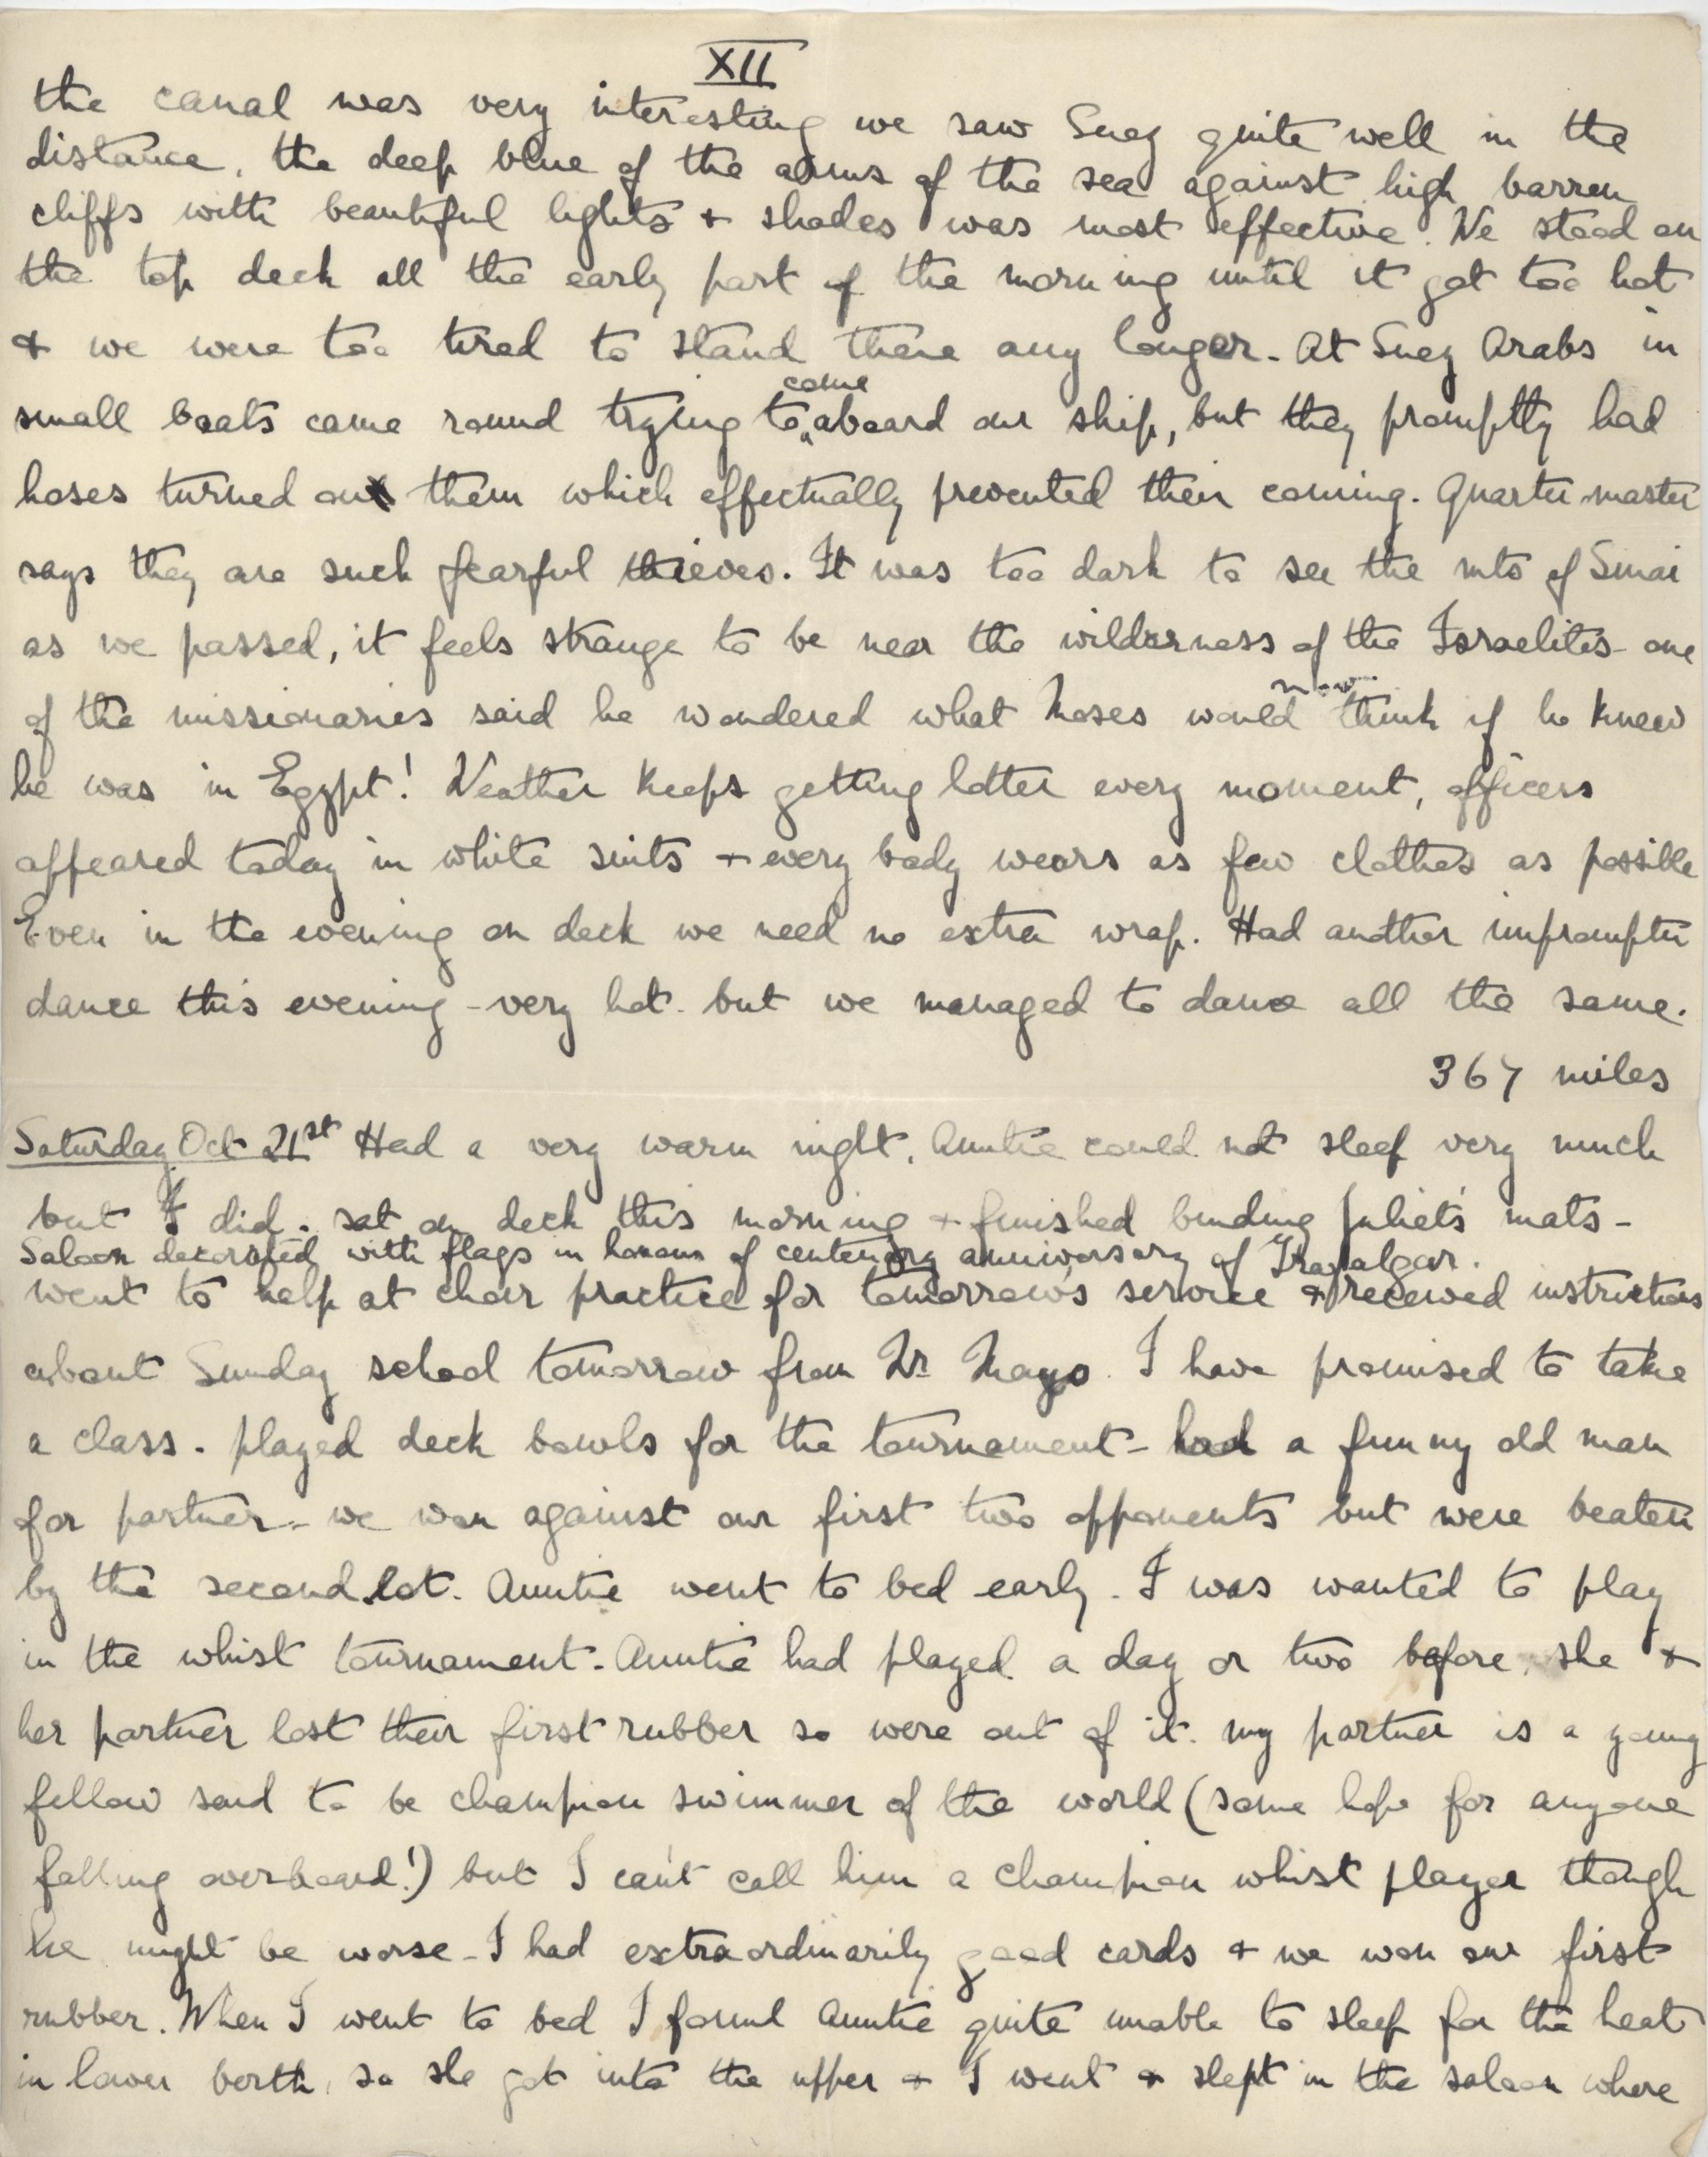 XII
the canal was very interesting we saw Suez quite well in the
distance, the deep blue of the arms of the sea against high barren
cliffs with beautiful lights + shades was most effective. We stood on
the top deck all the early part of the morning until it got too hot
+ we were too tired to stand there any longer - At Suez Arabs in
come
small boats came round trying to aboard our ship, but they promptly had
hoses turned on them which effectually prevented their coming. Quarter master
says they are such fearful thieves. It was too dark to see the mts of Sinai
as we passed, it feels strange to be near the wilderness of the Israelites - one
now
of the missionaries said he wondered what Moses would think if he knew
he was in Egypt! Weather keeps getting hotter every moment, officers
appeared today in white suits + every body wears as few clothes as possible
Even in the evening on deck we need no extra wrap. Had another impromptu
dance this evening - very hot - but we managed to dance all the same.
367 miles
Saturday Oct 21st Had a very warm night, Auntie could not sleep very much
but I did. sat on deck this morning + finished binding Juliet's mats -
Saloon decorated with flags in honour of centenary anniversary of Trafalgar.
went to help at choir practice for tomorrow's service + received instructions
about Sunday school tomorrow from Mr Mayo. I have promised to take
a class. played deck bowls for the tournament - had a funny old man
for partner - we won against our first two opponents but were beaten
by the second lot. Auntie went to bed early. I was wanted to play
in the whist tournament - Auntie had played a day or two before, she +
her partner lost their first rubber so were out of it. my partner is a young
fellow said to be champion swimmer of the world (some hope for anyone
falling overboard!) but I can't call him a champion whist player though
he might be worse - I had extraordinarily good cards + we won our first
rubber. When I went to bed I found Auntie quite unable to sleep for the heat
in lower berth, so she got into the upper + I went + slept in the saloon where